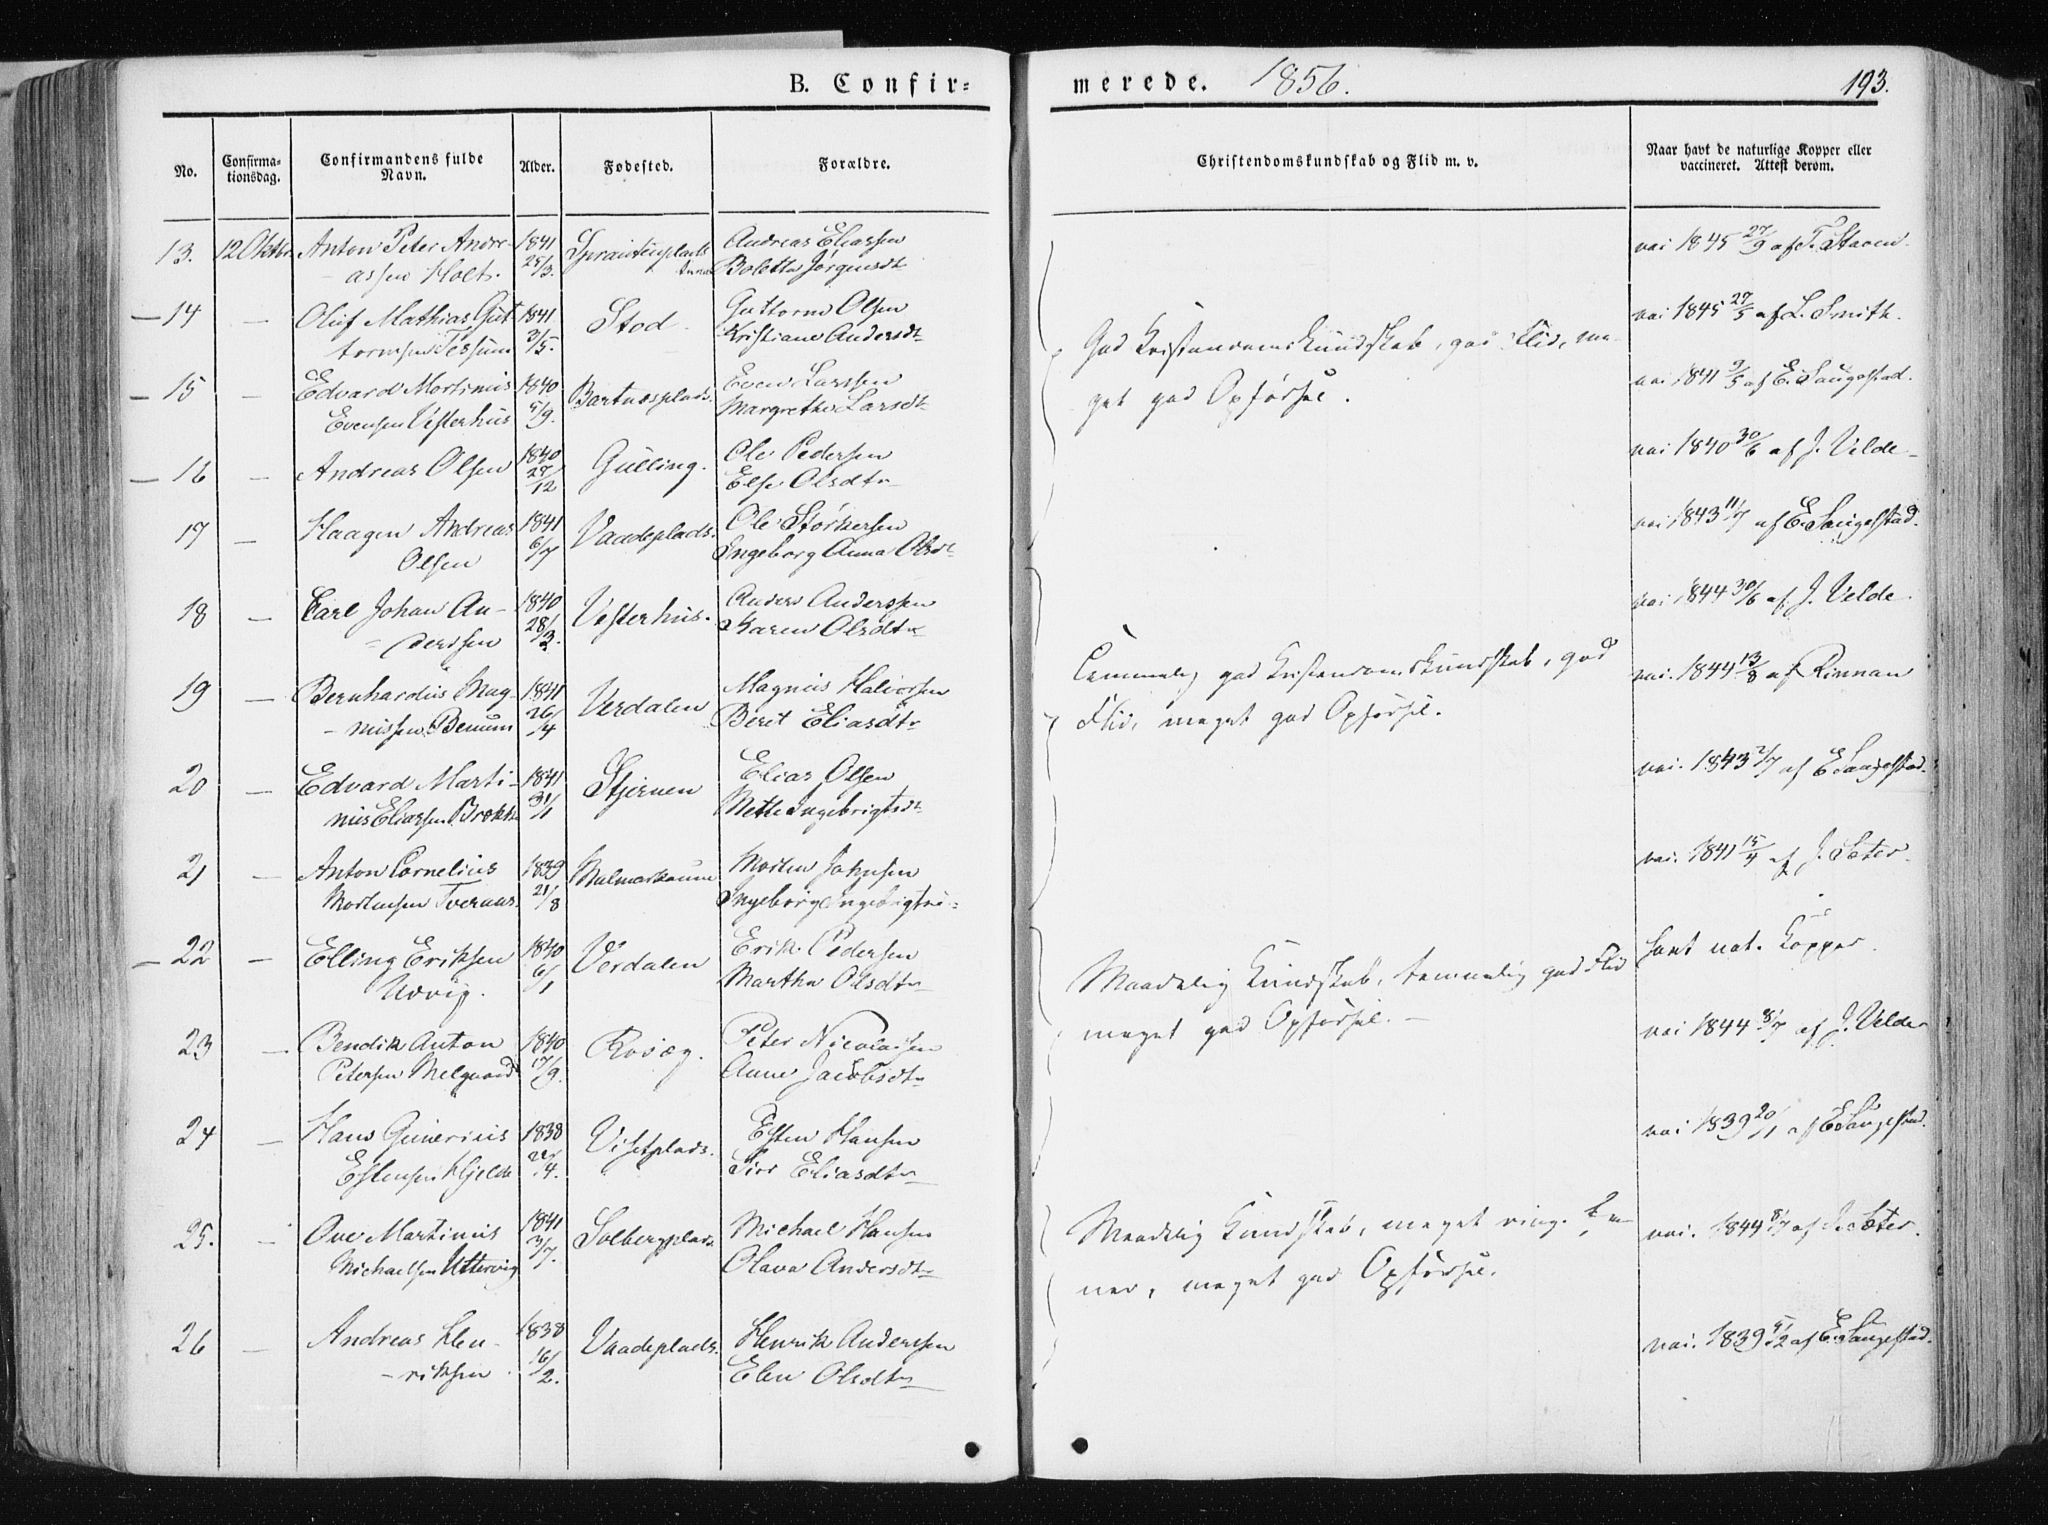 B. Confir=
merede. 1856.
193.
No.
Confirma-
tionsdag.
Confirmandens fulde
Navn.
Alder.
Fødested.
Forældre.
Christendomskundskab og Flid m. v.
Naar havt de naturlige Kopper eller
vaccineret. Attest derom.
13. 12 Oktbr. Anton Peter Andre- 1841 Andreas Eliassen vac 1845 27/9 af T. Staven
assen Holt. 25/3. Boletta Jørgensdt
14 — Oluf Mathias Gut 1841 Stod Guttorm Olsen vac 1845 27/5 af L. Smith.
tormsen Tessum 3/5. Kristiane Andersdt
God Kristendomskundskab, god Flid, me-
get god Opførsel.
15 — Edvard Martinus 1840 Bartnesplads. Even Larssen vac 1841 3/5 af E. Saugestad.
Evensen Vesterhus 5/9. Margrethe Larsdt
16 — Andreas Olsen 1840 Gulling. Ole Pedersen vac 1840 30/6 af J. Velde
27/12 Else Olsdtr
17 — Haagen Andreas 1841 Vaadeplads. Ole Størkersen vac 1843 11/7 af E. Saugestad.
Olsen 6/7 Ingeborg Anna Olsdt
18 — Carl Johan An- 1840 Vesterhus. Anders Anderssen vac 1844 30/6 af J. Velde.
dersen 28/2. Karen Olsdtr
Temmelig god Kristendomskundskab, god
Flid, meget god Opførsel.
19 — Bernhardus Mag- 1841 Verdalen Magnus Halvorsen vac. 1844 13/8 af Rinnan
nussen Benum 26/4 Berit Eliasdtr
20 — Edvard Marti- 1841 Stjernen Elias Olsen vac. 1843 7/7 af E Saugestad.
nus Eliassen Brekke 31/1 Mette Ingebrigtsdt
21 — Anton Cornelius 1839 Morten Johnsen vac. 1841 15/4 af J. Sæter.
Mortensen Tveraas. 21/8 Ingeborg
22 — Elling Eriksen 1840 Verdalen Erik Pedersen havt nat. Kopper.
Udvig. 6/1 Martha Olsdtr
Maadelig Kundskab, temmelig god Flid
meget god Opførsel. —
23 — Bendik Anton 1840 Peter Nicolaisen vac 1844 8/7 af J. Velde
Petersen Melgaard 17/9. Anne Jacobsdtr
24 — Hans Gunerius 1838 Visetplads. Esten Hansen vac 1839 20/1 af E Saugestad.
Estensen Hjelde 22/4. Siri Eliasdtr
25. — Ove Martinus 1841 Solbergplads Michael Hansen vac. 1844 8/7 af J. Sæter.
Michaelsen Uttervig 3/7. Olava Andersdtr
Maadelig Kundskab, meget ring. Ev-
ner, meget god Opførsel.
26 — Andreas Hen- 1838 Vaadeplads. Henrik Anderssen vac. 1839 5/12 af E. Saugestad.
riksen 16/2. Elen Olsdtr